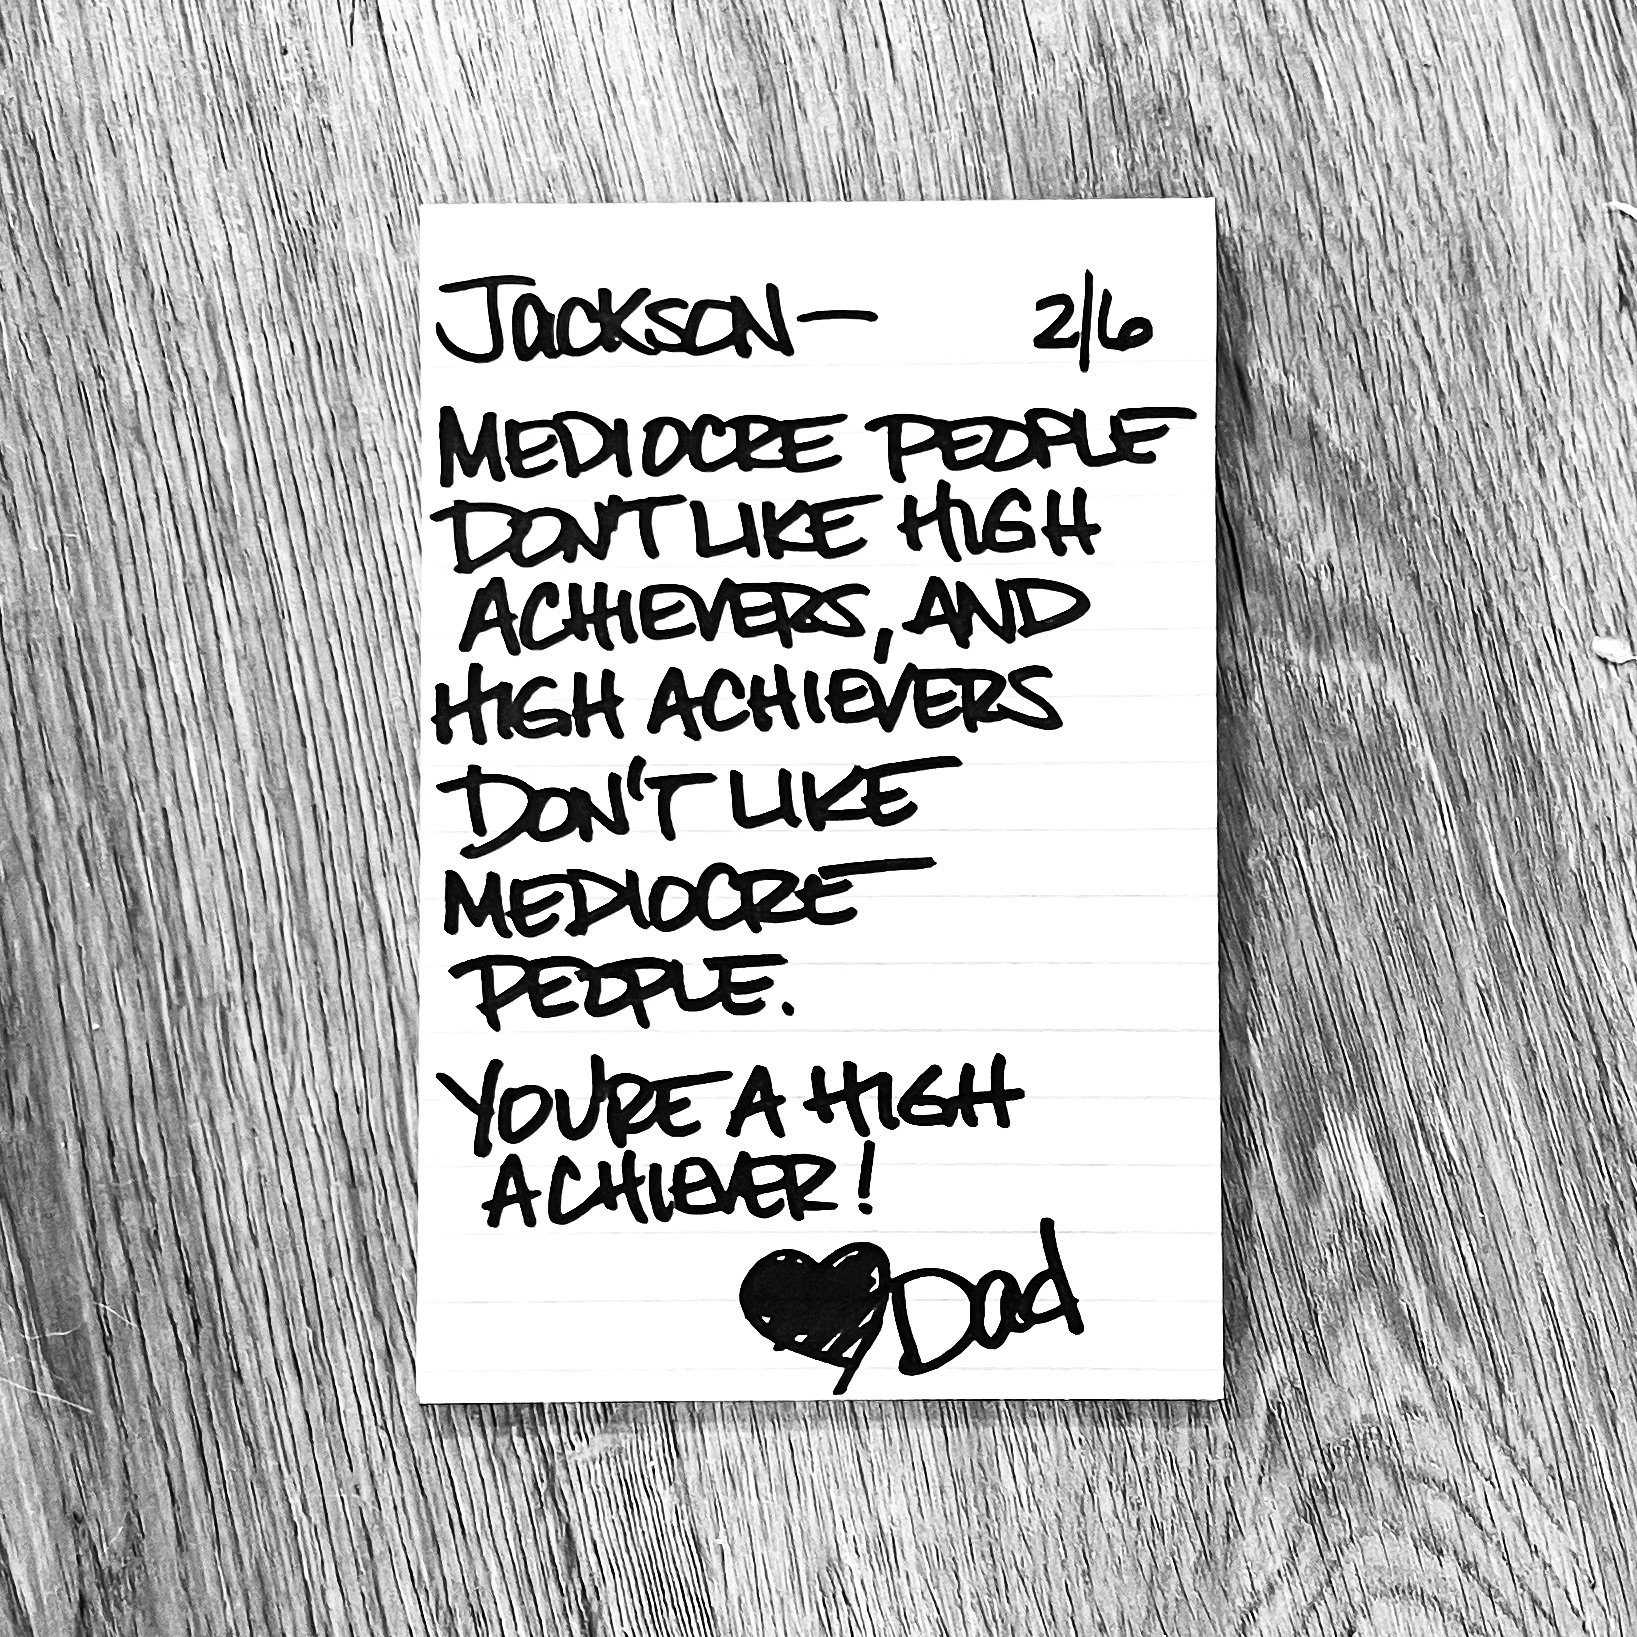 Jackson— 2/6
MEDIOCRE PEOPLE
DON'T LIKE HIGH
ACHIEVERS, AND
HIGH ACHIEVERS
DON'T LIKE
MEDIOCRE
PEOPLE.
YOU'RE A HIGH
ACHIEVER!
♥Dad